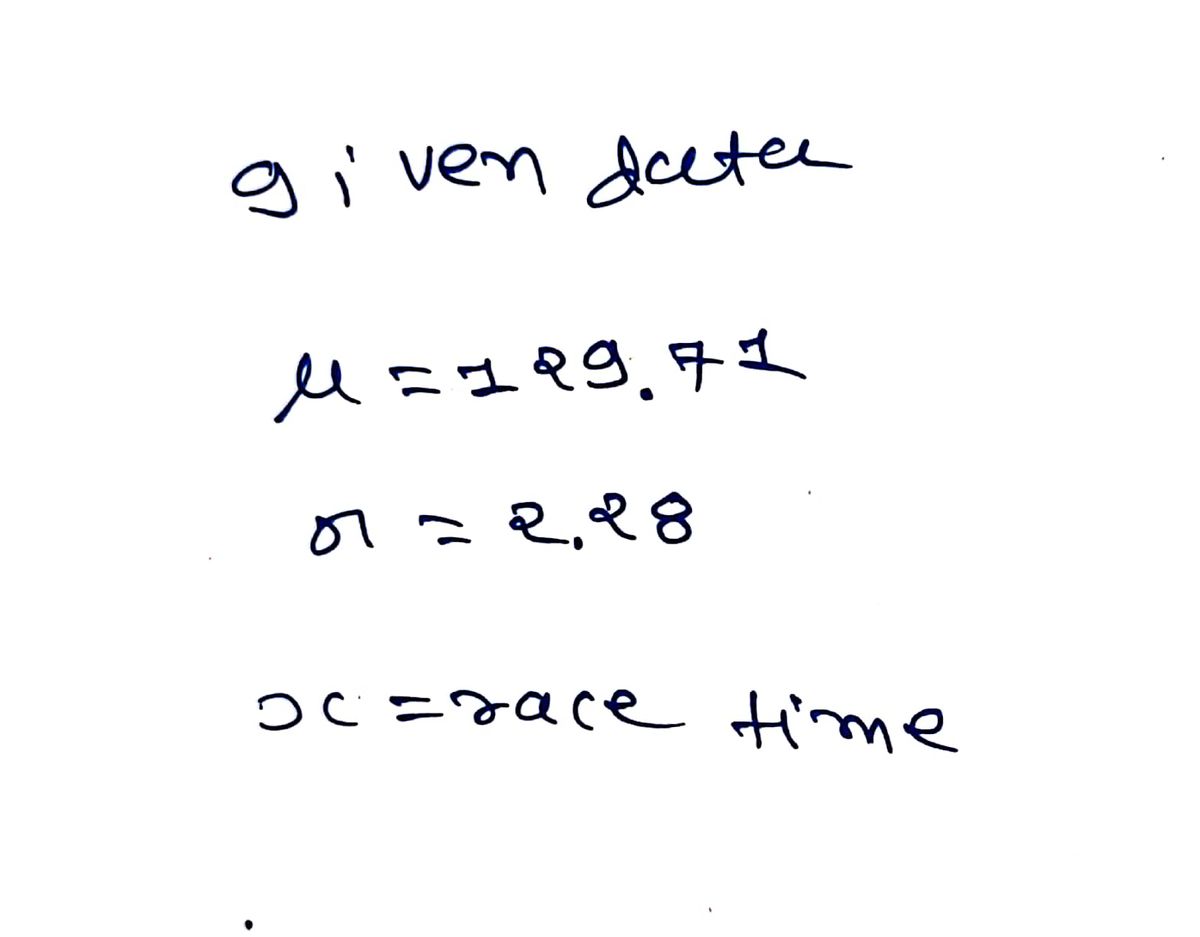 given data
μ = 129.71
σ = 2.28
x = race time